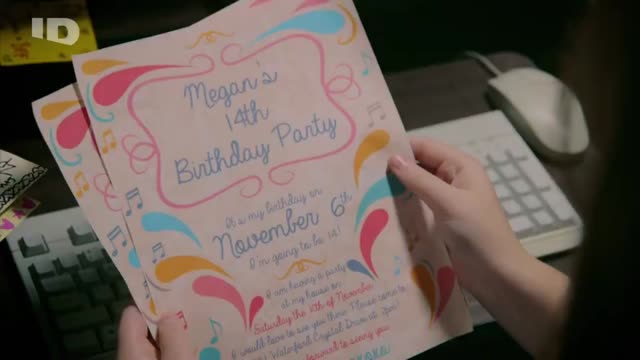 ID
Megan's
14th
Birthday Party
It is my birthday on
November 6th
I'm going to be 14!
I am having a party
at my house on
Saturday the 10th of November
I would love to see you there. Please come to
Waterford Crystal Drive at 2pm!
forward to seeing you